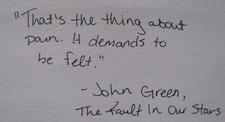 "That's the thing about
pain. It demands to
be felt."
- John Green,
The Fault In Our Stars